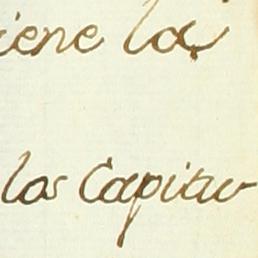 iene la
los Capitu